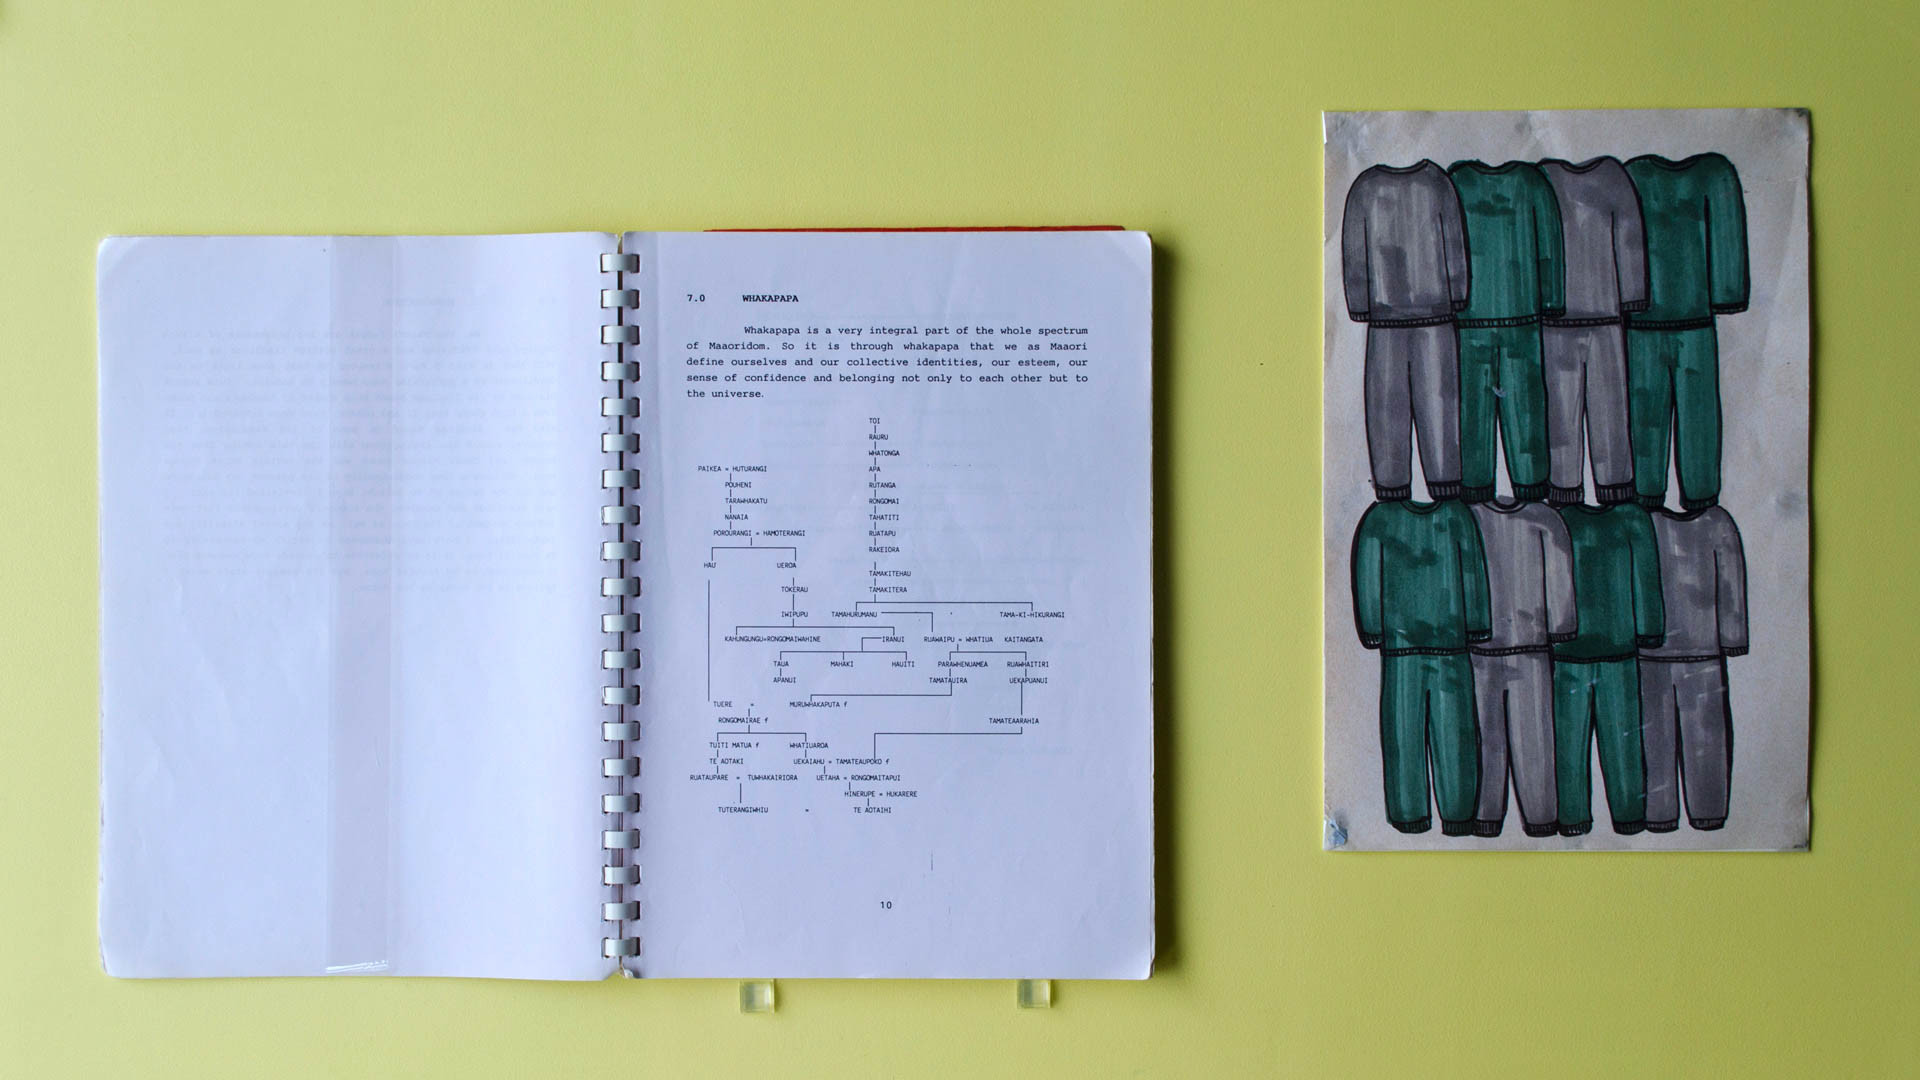 7.0 WHAKAPAPA
Whakapapa is a very integral part of the whole spectrum
of Maaoridom. So it is through whakapapa that we as Maaori
define ourselves and our collective identities, our esteem, our
sense of confidence and belonging not only to each other but to
the universe.
TOI
RAURU
WHATONGA
PAIKEA = HUTURANGI APA
POUHENI RUTANGA
TARAWHAKATU RONGOMAI
NANAIA TAHATITI
POROURANGI = HAMOTERANGI RUATAPU
RAKEIORA
HAU UEROA
TAMAKITEHAU
TOKERAU TAMAKITERA
IWIPUPU TAMAHURUMANU TAMA-KI-HIKURANGI
KAHUNGUNGU=RONGOMAIWAHINE IRANUI RUAWAIPU = WHATIUA KAITANGATA
TAUA MAHAKI HAUITI PARAWHENUAMEA RUAWHAITIRI
APANUI TAMATAUIRA UEKAPUANUI
TUERE = MURUWHAKAPUTA f
RONGOMAIRAE f TAMATEAARAHIA
TUITI MATUA f WHATIUAROA
TE AOTAKI UEKAIAHU = TAMATEAUPOKO f
RUATAUPARE = TUWHAKAIRIORA UETAHA = RONGOMAITAPUI
HINERUPE = HUKARERE
TUTERANGIWHIU = TE AOTAIHI
10